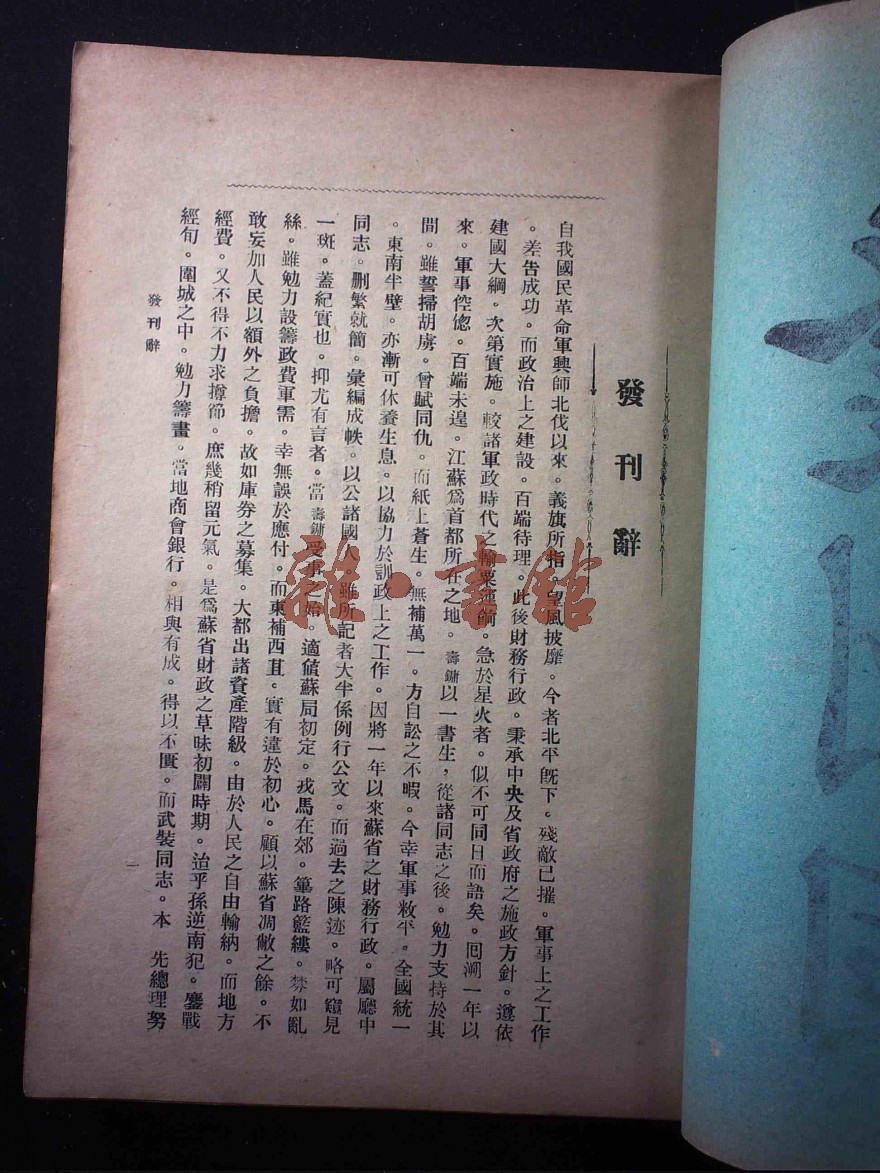 發刊辭
自我國民革命軍興師北伐以來。義旗所指。望風披靡。今者北平旣下。殘敵已摧。軍事上之工作
。差告成功。而政治上之建設。百端待理。此後財務行政。秉承中央及省政府之施政方針。遵依
建國大綱。次第實施。較諸軍政時代之輸粟運餉。急於星火者。似不可同日而語矣。囘溯一年以
來。軍事倥偬。百端未遑。江蘇爲首都所在之地。壽鏞以一書生，從諸同志之後。勉力支持於其
間。雖誓掃胡虜。曾賦同仇。而紙上蒼生。無補萬一。方自訟之不暇。今幸軍事敉平。全國統一
。東南半壁。亦漸可休養生息。以協力於訓政上之工作。因將一年以來蘇省之財務行政。屬廳中
同志。删繁就簡。彙編成帙。以公諸國人。雖所記者大半係例行公文。而過去之陳迹。略可窺見
一斑。蓋紀實也。抑尤有言者。當壽鏞受事之始。適値蘇局初定。戎馬在郊。篳路籃縷。棼如亂
絲。雖勉力設籌政費軍需。幸無誤於應付。而東補西苴。實有違於初心。顧以蘇省凋敝之餘。不
敢妄加人民以額外之負擔。故如庫券之募集。大都出諸資產階級。由於人民之自由輸納。而地方
經費。又不得不力求撙節。庶幾稍留元氣。是爲蘇省財政之草昧初闢時期。治乎孫逆南犯。鏖戰
經旬。圍城之中。勉力籌畫。當地商會銀行。相與有成。得以不匱。而武裝同志。本　先總理努
發刊辭
一
雜·書館